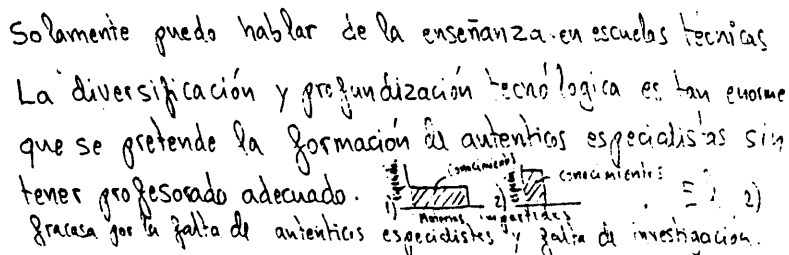 Solamente puedo hablar de la enseñanza en escuelas técnicas
La diversificación y profundización tecnológica es tan enorme
que se pretende la formación de autenticos especialistas sin
tener profesorado adecuado. 1) conocimientos 2) conocimientos 2)
Materias impartidas
fracasa por la falta de autenticos especialistes y falta de investigación.